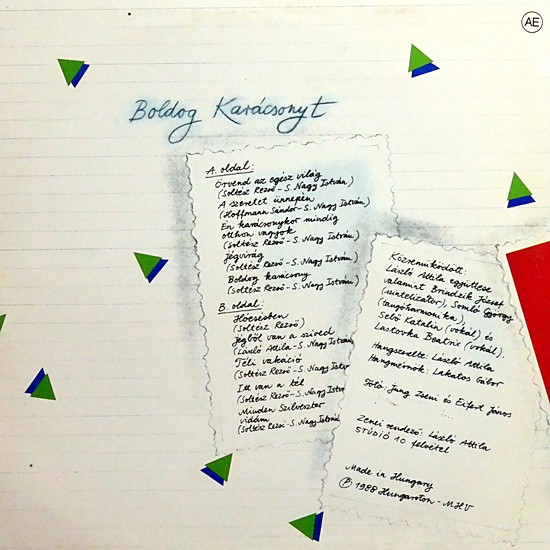 AE
Boldog Karácsonyt
A. oldal:
Örvend az egész világ
(Soltész Rezső - S. Nagy István)
A szeretet ünnepén
(Hoffmann Sándor - S. Nagy István)
Én karácsonykor mindig
otthon vagyok
(Soltész Rezső - S. Nagy István)
Jégvirág
(Soltész Rezső - S. Nagy István)
Boldog karácsony
(Soltész Rezső - S. Nagy István)
B. oldal:
Hóesésben
(Soltész Rezső)
Jégből van a szíved
(László Attila - S. Nagy István)
Téli vakáció
(Soltész Rezső - S. Nagy
Itt van a tél
(Soltész Rezső - S. Nagy
Minden Szilveszter
vidám
(Soltész Rezső - S. Nagy
Közreműködött:
László Attila együttese
valamint Brindzik József
(szintetizátor), Somló György
(tangóharmonika)
Sebő Katalin (vokál) és
Lastovka Beatrix (vokál).
Hangszerelte: László Attila
Hangmérnök: Lakatos Gábor
Fotó: Jung Zseni és Eifert János
Zenei rendező: László Attila
STÚDIÓ 10 felvétel
Made in Hungary
Ⓟ 1988 Hungaroton - MHV